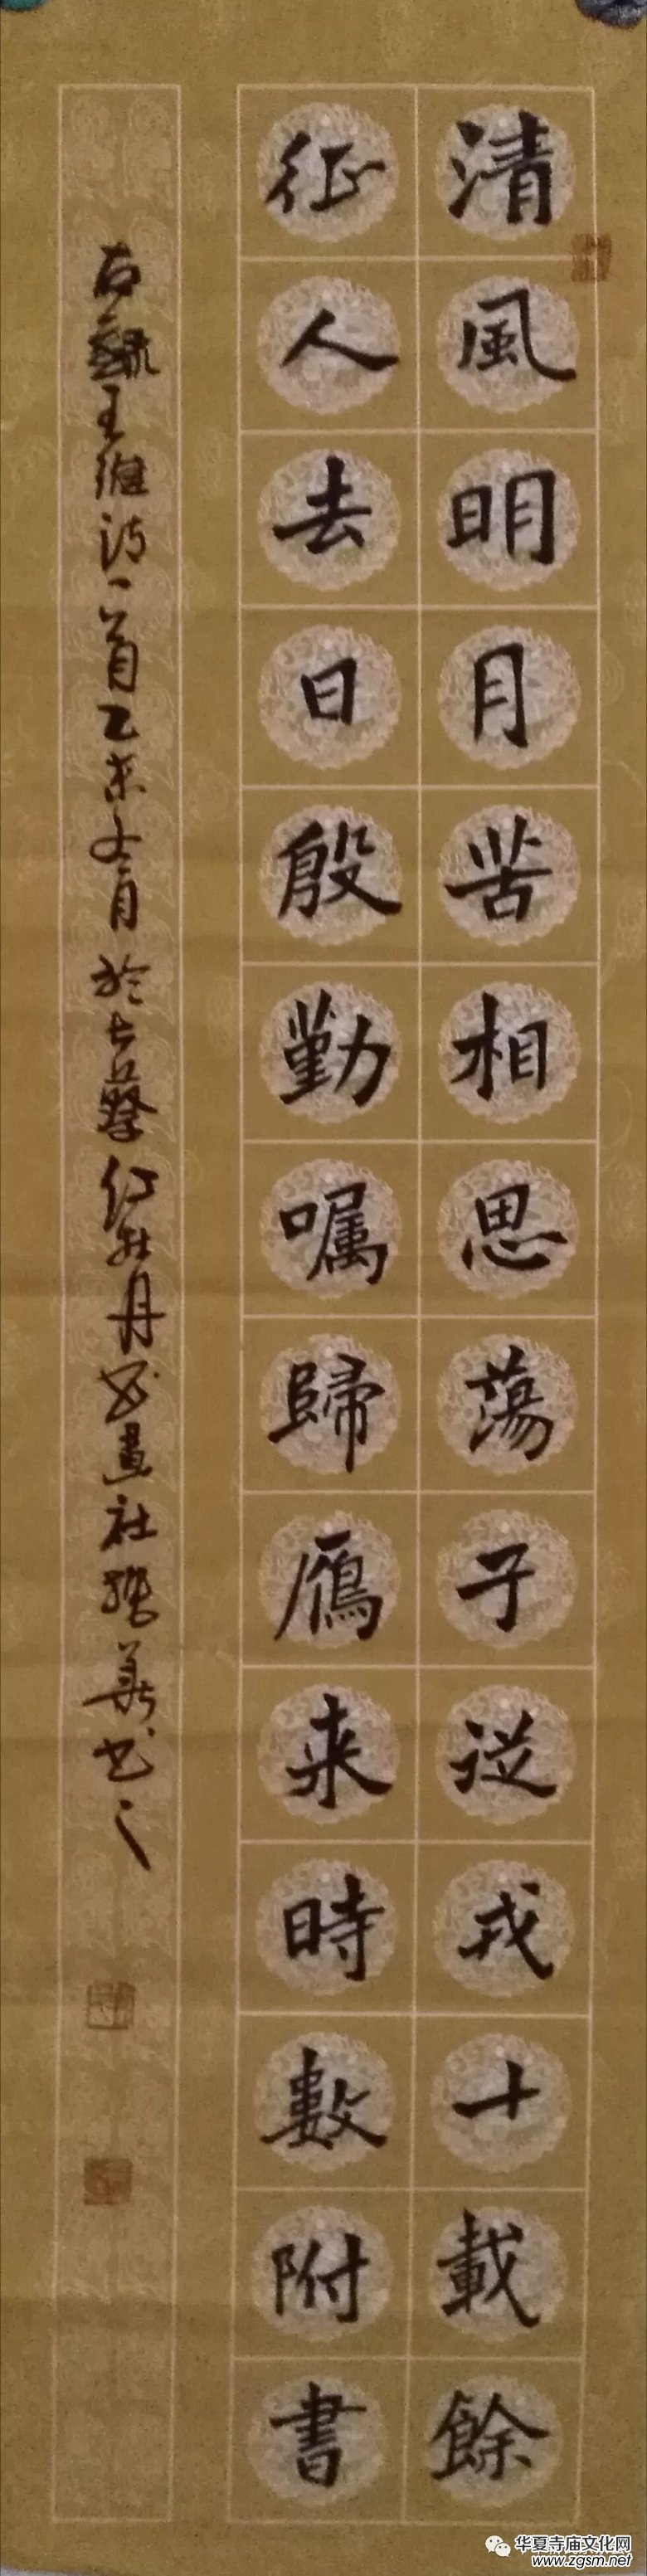 清風明月苦相思蕩子從戎十載餘
征人去日殷勤嘱歸雁来時數附書
右錄王維詩一首乙未年夏月於上蔡任牡丹书畫社張華书之
华夏寺庙文化网
www.zgsm.net